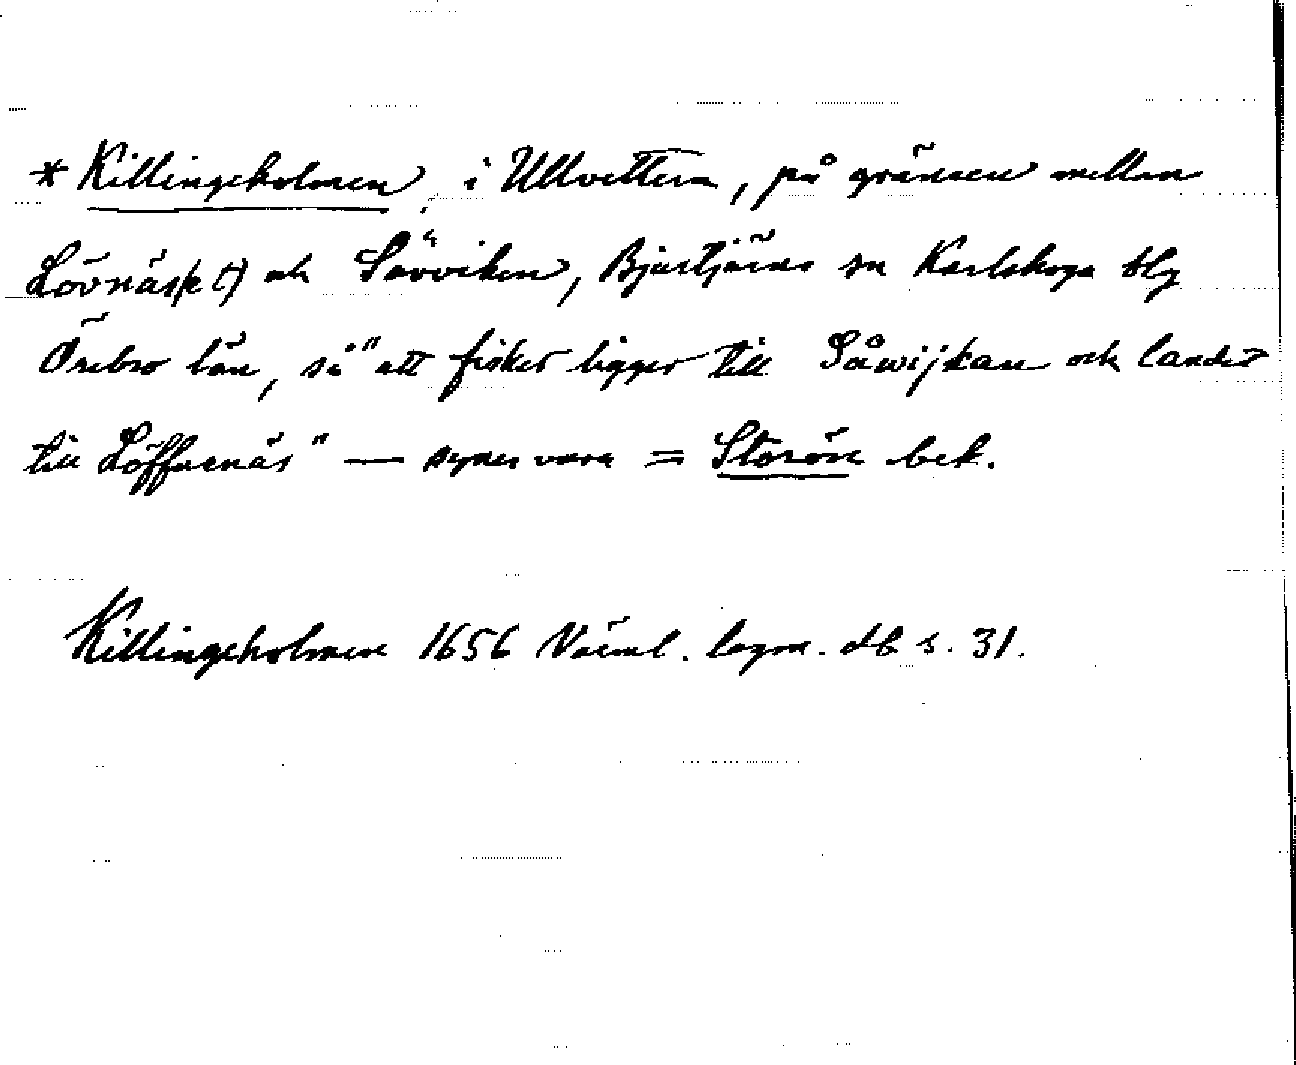 * Killingeholmen, i Ullvettern, på gränsen mellan
Lövnäs(et) och Såvviken, Bjurtjärns sn Karlskoga blg
Örebro län, så "att fisket ligger till Såwijkan och landet
till Löffnenäs" — synes vara = Storön bek.
Killingeholmen 1656 Värml. lagm. db s. 31.